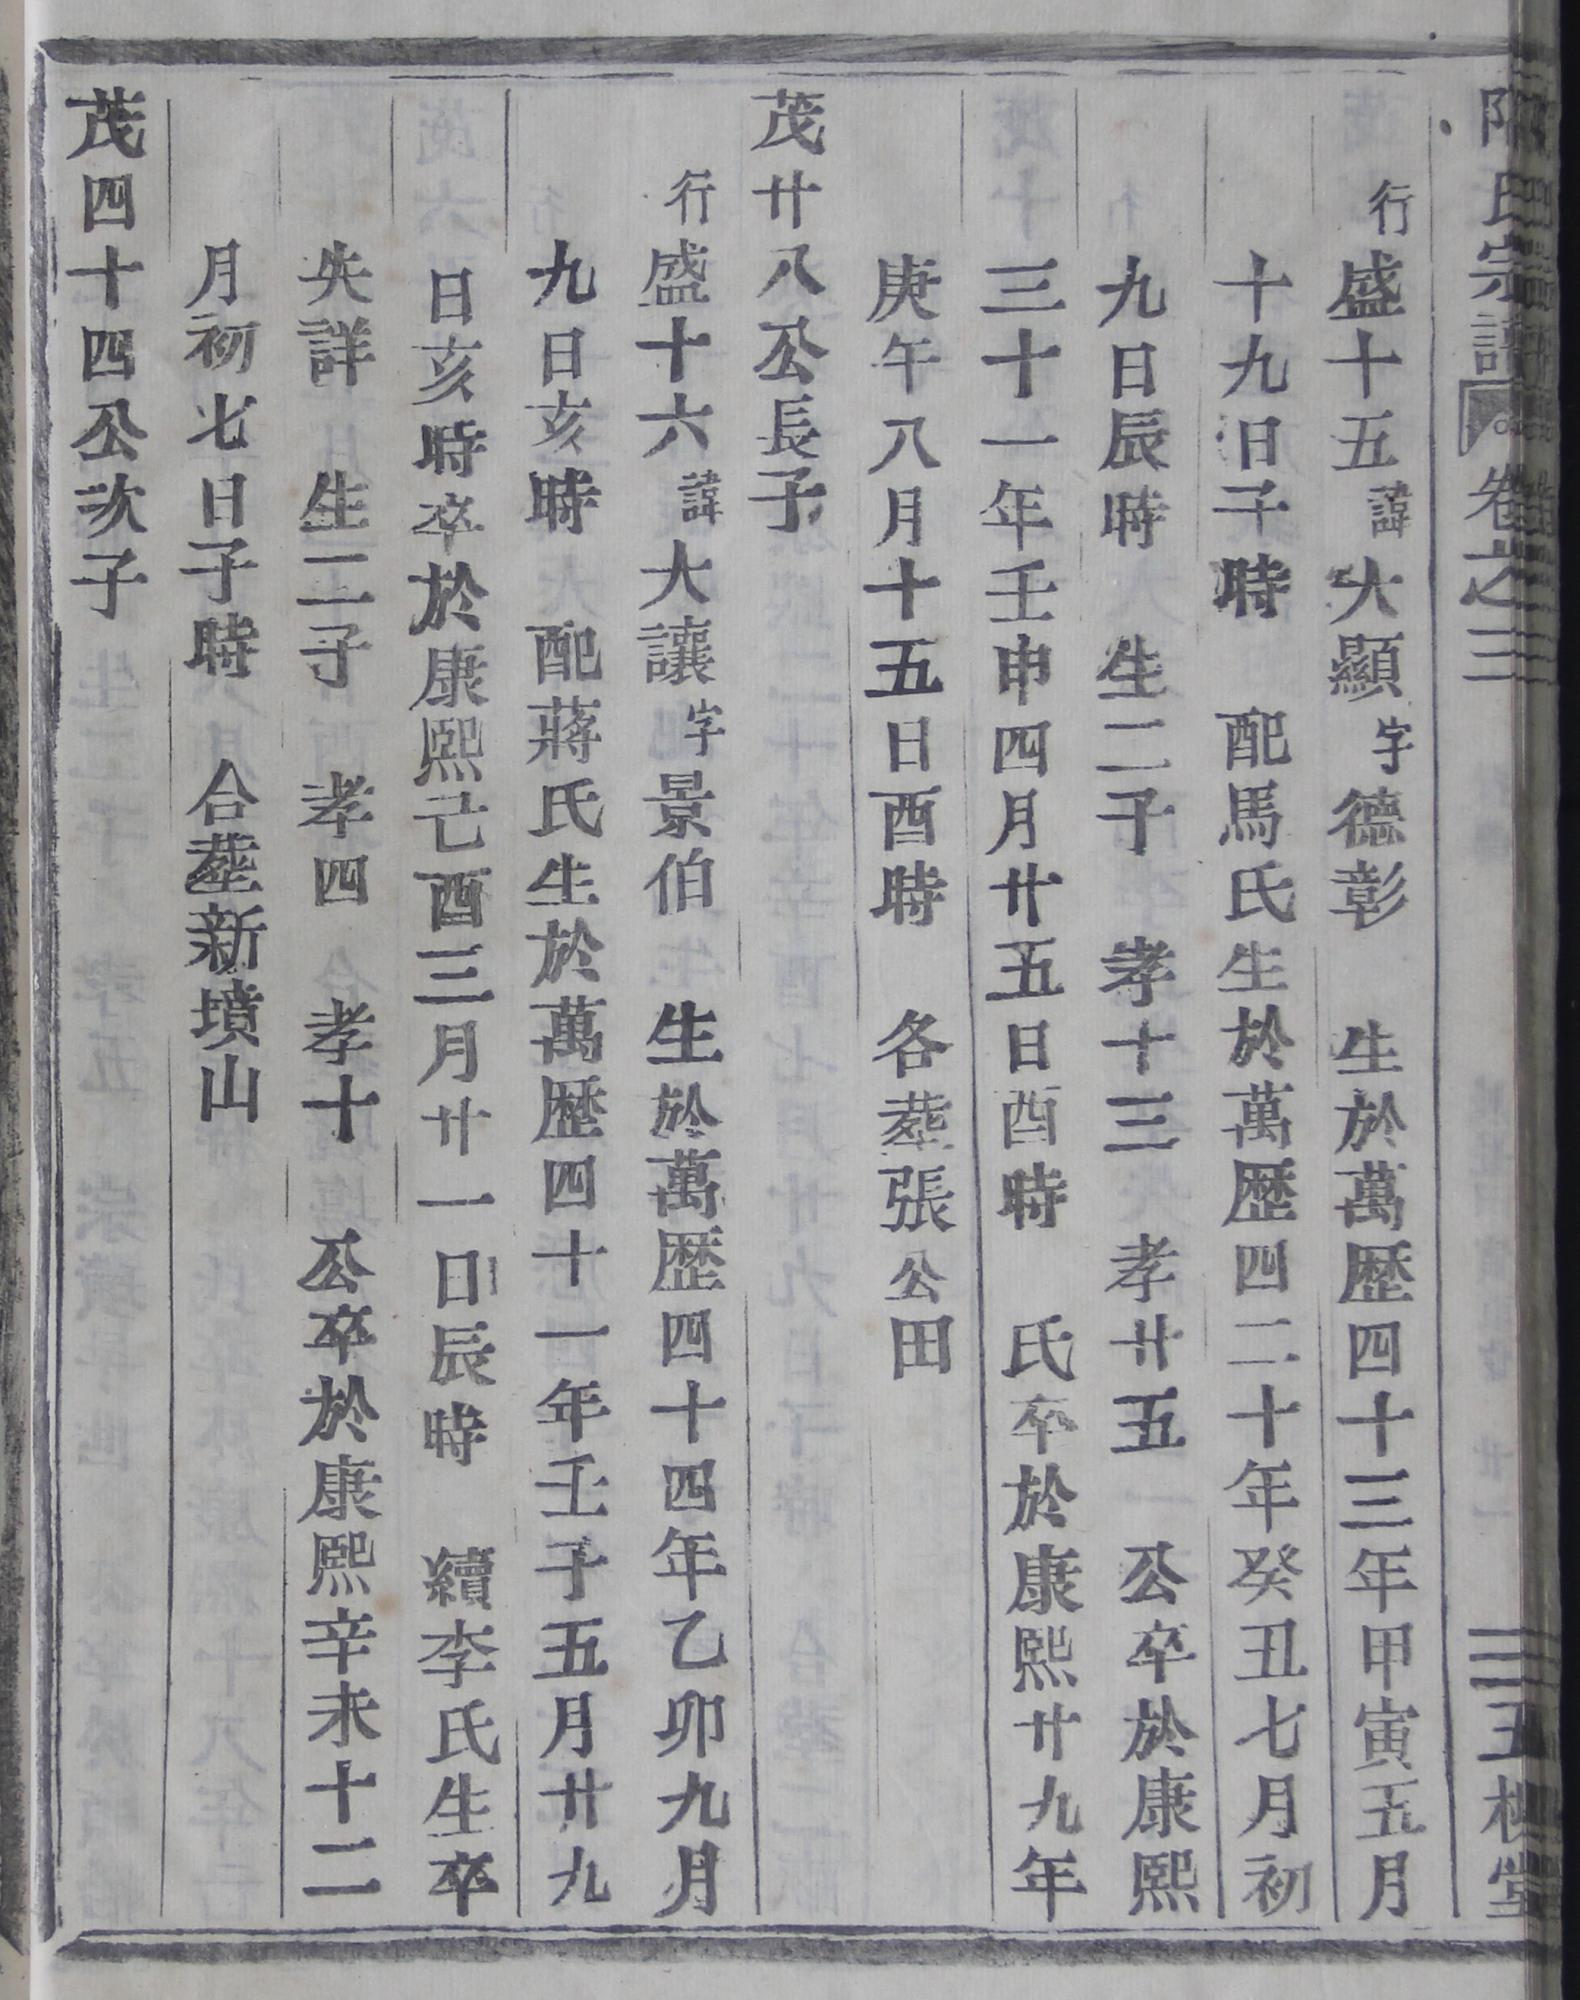 氏宗譜 卷之三 三五 堂
行盛十五諱大顯字德彰 生於萬歴四十三年甲寅五月
十九日子時 配馬氏生於萬歴四二十年癸丑七月初
九日辰時 生二子 孝十三 孝廿五 公卒於康熙
三十一年壬申四月廿五日酉時 氏卒於康熙廿九年
庚午八月十五日酉時 各塟張公田
茂廿八公長子
行盛十六諱大讓字景伯 生於萬歴四十四年乙卯九月
九日亥時 配蔣氏生於萬歴四十一年壬子五月廿九
日亥時卒於康熙己酉三月廿一日辰時 續李氏生卒
失詳 生二子 孝四 孝十 公卒於康熙辛未十二
月初七日子時 合塟新墳山
茂四十四公次子